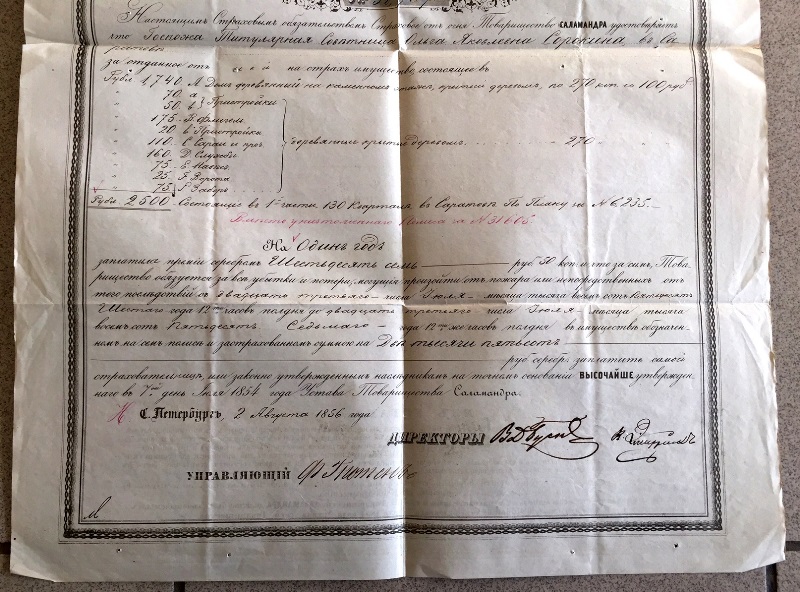 Настоящимъ Страховымъ обязательствомъ Страховое отъ огня Товарищество САЛАМАНДРА удостовѣряетъ
что Госпожа Титулярная Совѣтница Ольга Яковлевна Сорокина въ Са
ратовѣ
за отданное отъ ея на страхъ имущество состоящее въ
Рубл 1740. А Домъ деревянный на каменномъ крытый деревомъ, по 270 коп со 100 руб
70. а
50. б Пристройки
175. Б. Флигель
20. в Пристройки
110. С. Сараи и проч. деревянныя крытые деревомъ 270
160. D.
75. Е.
25. F. Ворота
75. Заборъ
Рубл 2500. Состоящее въ 1й части 130 Кварталѣ въ Саратовѣ По Плану за № 6235.
Вмѣсто уничтоженнаго Полиса за № 31605
На Одинъ годъ
заплатила преміи серебромъ Шестьдесятъ семь руб 50 коп и что за симъ, Това
рищество обязуется за всѣ убытки и потери, могущія произойти отъ пожара или непосредственныхъ отъ
того послѣдствій съ двадцать третьяго числа Іюля мѣсяца тысяча восемь сотъ Пятьдесятъ
Шестаго года 12ть часовъ полдня до двадцать третьяго числа Іюля мѣсяца тысяча
восемь сотъ Пятьдесятъ Седьмаго года 12ть же часовъ полдня въ имуществѣ означен
номъ на семъ полисѣ и застрахованномъ суммою на Двѣ тысячи пятьсотъ
руб серебр. заплатить самой
страхователницѣ, или законно утвержденнымъ наслѣдникамъ на точномъ основаніи ВЫСОЧАЙШЕ утвержден
наго въ 7й день Мая 1854 года Устава Товарищества Саламандра.
С. Петербургъ, 2 Августа 1856 года
ДИРЕКТОРЫ
УПРАВЛЯЮЩІЙ